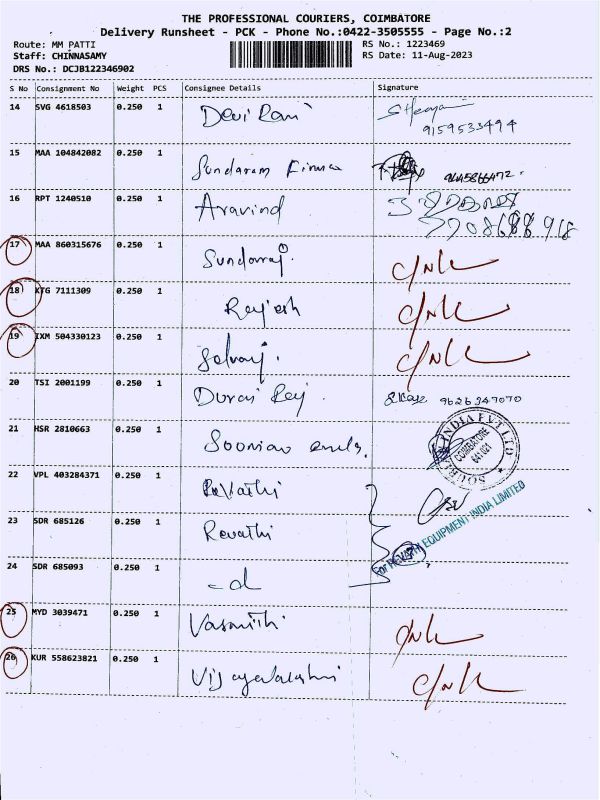 THE PROFESSIONAL COURIERS, COIMBATORE
Delivery Runsheet - PCK - Phone No.:0422-3505555 - Page No.:2
Route: MM PATTI RS No.: 1223469
Staff: CHINNASAMY RS Date: 11-Aug-2023
DRS No.: DCJB122346902
S No Consignment No Weight PCS Consignee Details Signature
14 SVG 4618503 0.250 1 Devi Rani
9159533494
15 MAA 104842082 0.250 1 Sundaram Finance
16 RPT 1240510 0.250 1 Aravind
17 MAA 860315676 0.250 1 Sundarraj. C/NL
18 KTG 7111309 0.250 1 Rajesh C/NL
19 IXM 504330123 0.250 1 Selvaraj. C/NL
20 TSI 2001199 0.250 1 Durai Raj. 9626347070
21 HSR 2810663 0.250 1
INDIA PVT LTD
COIMBATORE
641 021
22 VPL 403284371 0.250 1 Revathi
For REVATHI EQUIPMENT INDIA LIMITED
23 SDR 685126 0.250 1 Revathi
24 SDR 685093 0.250 1 - d
25 MYD 3039471 0.250 1 Vasanthi C/NL
26 KUR 558623821 0.250 1 Vijayalakshmi C/NL